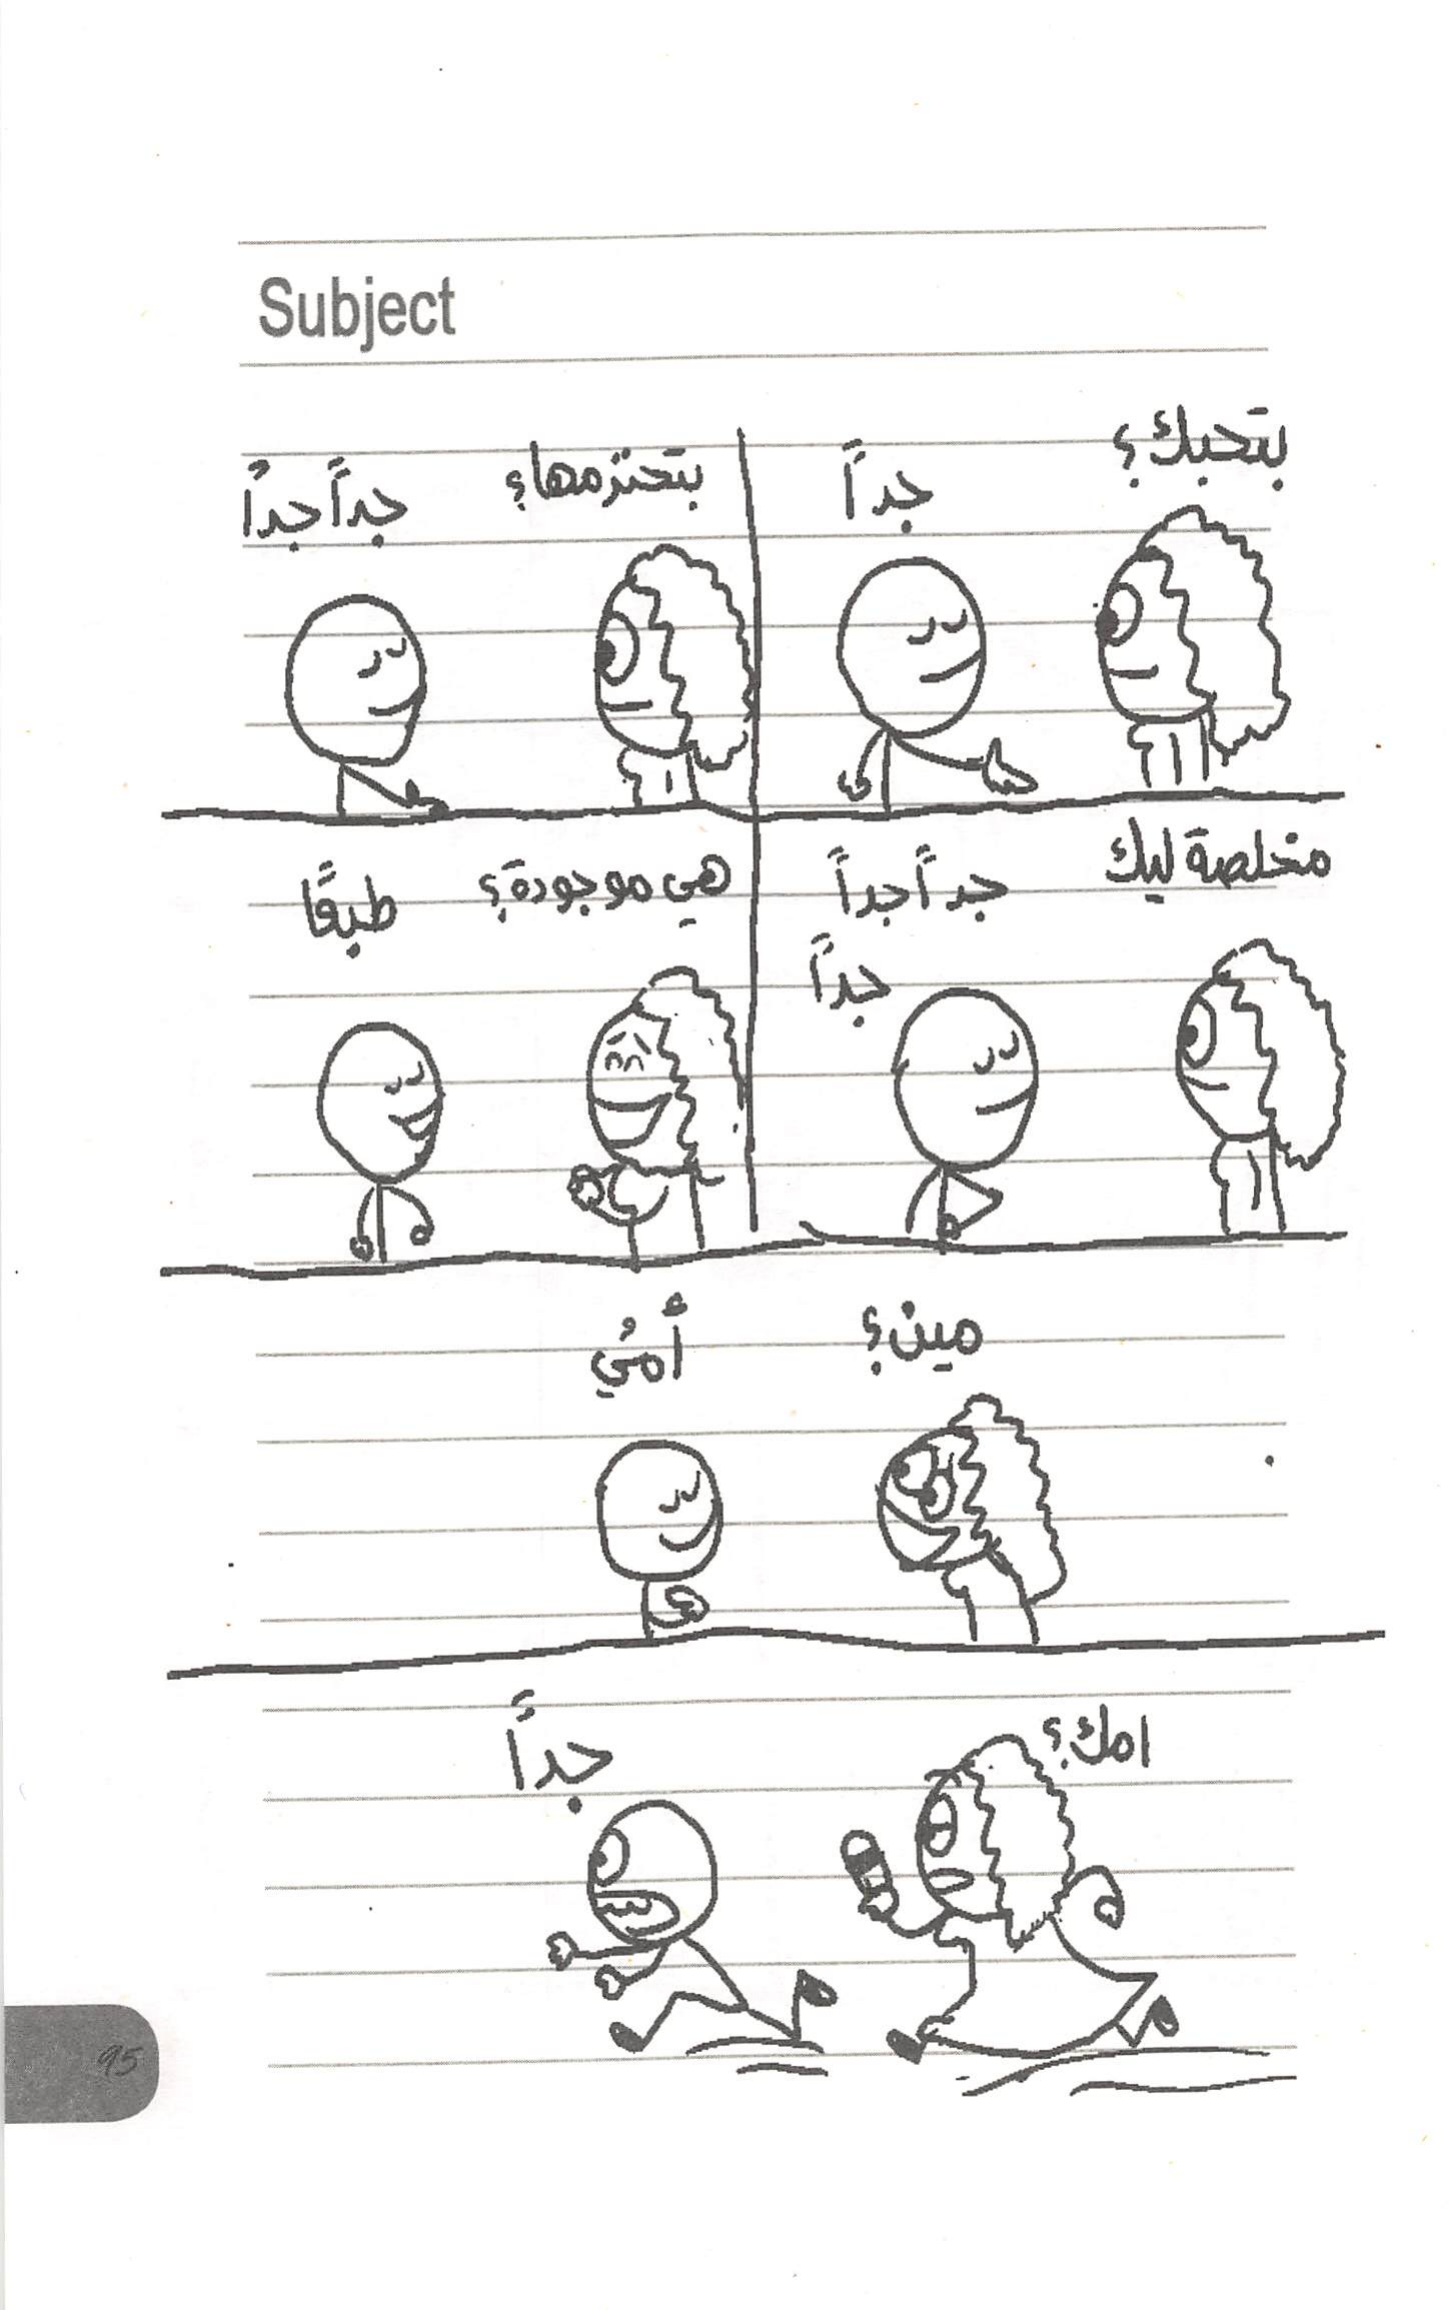 Subject
بتحبك؟
جداً
بتحترمها؟
جداً جداً
مخلصة ليك
جداً جداً
جداً
هي موجودة؟
طبعًا
مين؟
أمُي
امك؟
جداً
95